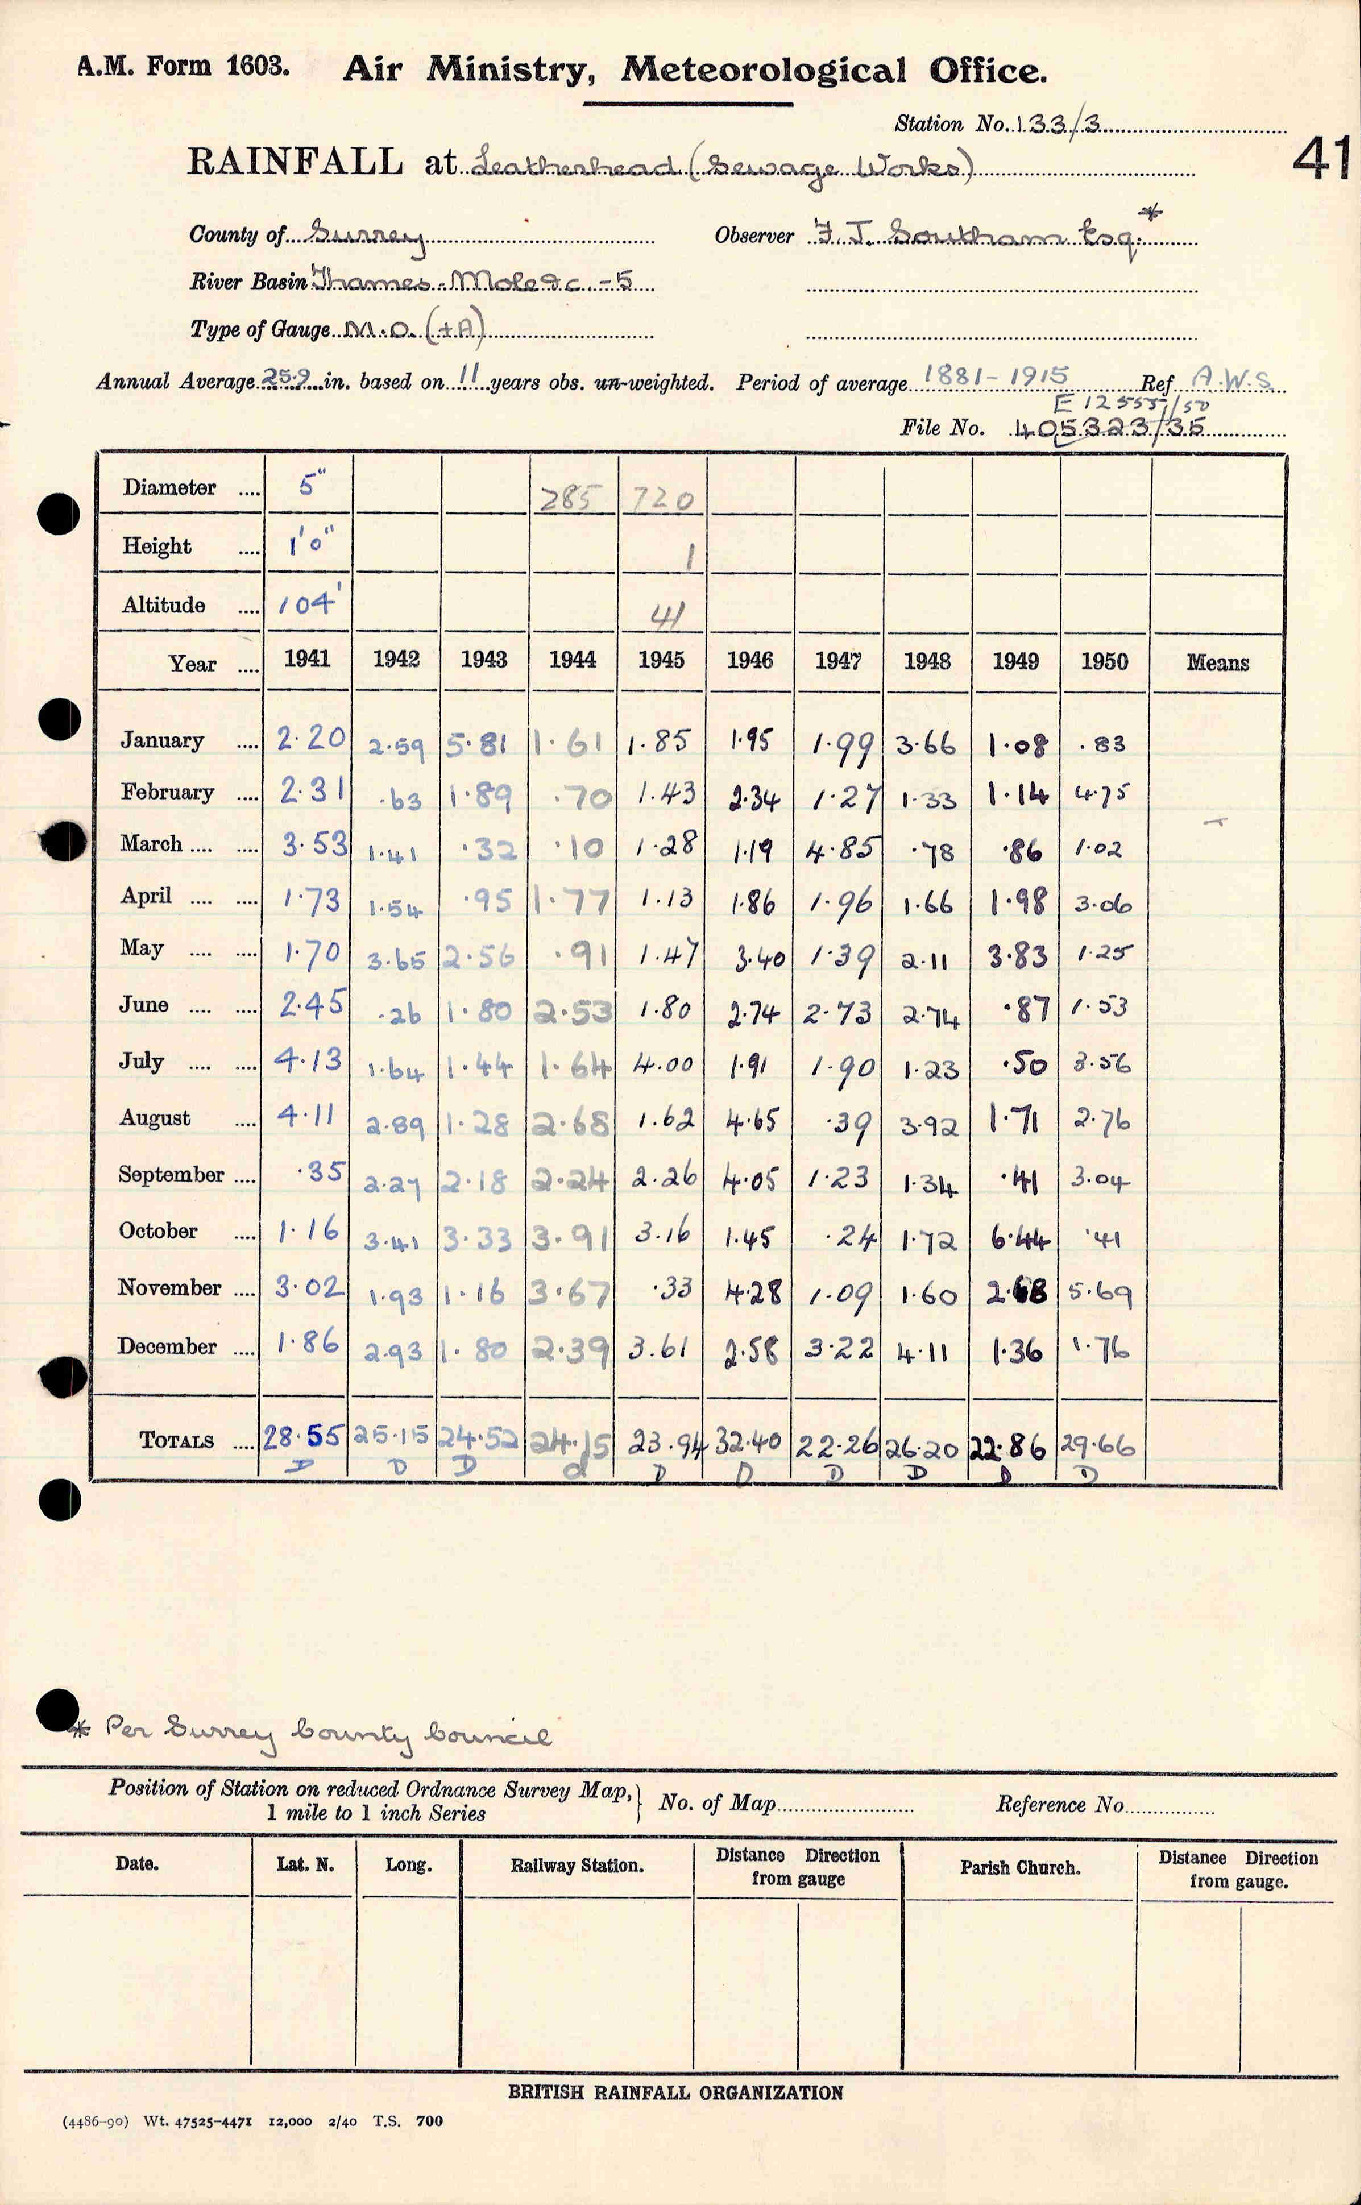 A.M. Form 1603. Air Ministry, Meteorological Office.
Station No. 133/3
41
RAINFALL at Leatherhead (Sewage Works)
County of Surrey Observer F. J. Southam Esq. *
River Basin Thames - Mole &c. - 5
Type of Gauge M.O. (+A)
Annual Average 25.9 in. based on 11 years obs. un-weighted. Period of average 1881 - 1915 Ref A.W.S.
E 12555/50
File No. 405323/35
Diameter .... 5" 285 720
Height .... 1'0" 1
Altitude .... 104' 41
Year .... 1941 1942 1943 1944 1945 1946 1947 1948 1949 1950 Means
January .... 2.20 2.59 5.81 1.61 1.85 1.95 1.99 3.66 1.08 .83
February .... 2.31 .63 1.89 .70 1.43 2.34 1.27 1.33 1.14 4.75
March .... .... 3.53 1.41 .32 .10 1.28 1.19 4.85 .78 .86 1.02
April .... .... 1.73 1.54 .95 1.77 1.13 1.86 1.96 1.66 1.98 3.06
May .... .... 1.70 3.65 2.56 .91 1.47 3.40 1.39 2.11 3.83 1.25
June .... .... 2.45 .26 1.80 2.53 1.80 2.74 2.73 2.74 .87 1.53
July .... .... 4.13 1.64 1.44 1.64 4.00 1.91 1.90 1.23 .50 3.56
August .... 4.11 2.89 1.28 2.68 1.62 4.65 .39 3.92 1.71 2.76
September .... .35 2.27 2.18 2.24 2.26 4.05 1.23 1.34 .41 3.04
October .... 1.16 3.41 3.33 3.91 3.16 1.45 .24 1.72 6.44 .41
November .... 3.02 1.93 1.16 3.67 .33 4.28 1.09 1.60 2.68 5.69
December .... 1.86 2.93 1.80 2.39 3.61 2.58 3.22 4.11 1.36 1.76
TOTALS .... 28.55 25.15 24.52 24.15 23.94 32.40 22.26 26.20 22.86 29.66
D D D d D D D D D D
* Per Surrey County Council
Position of Station on reduced Ordnance Survey Map, } No. of Map Reference No
1 mile to 1 inch Series
Date. Lat. N. Long. Railway Station. Distance Direction from gauge Parish Church. Distance Direction from gauge.
BRITISH RAINFALL ORGANIZATION
(4486-90) Wt. 47525-4471 12,000 2/40 T.S. 700